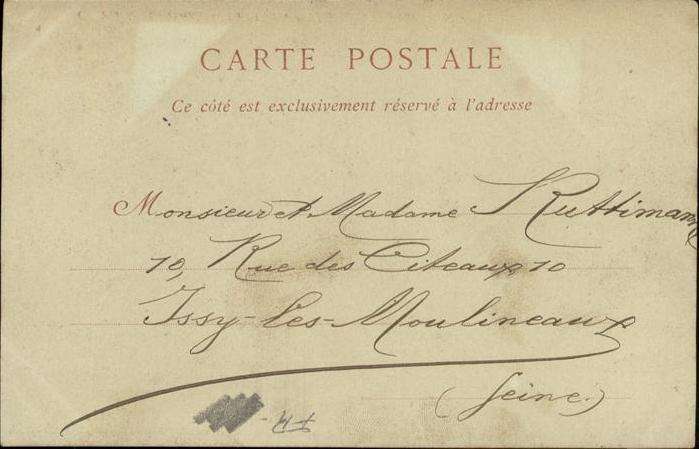 CARTE POSTALE
Ce côté est exclusivement réservé à l'adresse
Monsieur et Madame Ruttimann
10, Rue des Citeaux 10
Issy-les-Moulineaux
(Seine.)